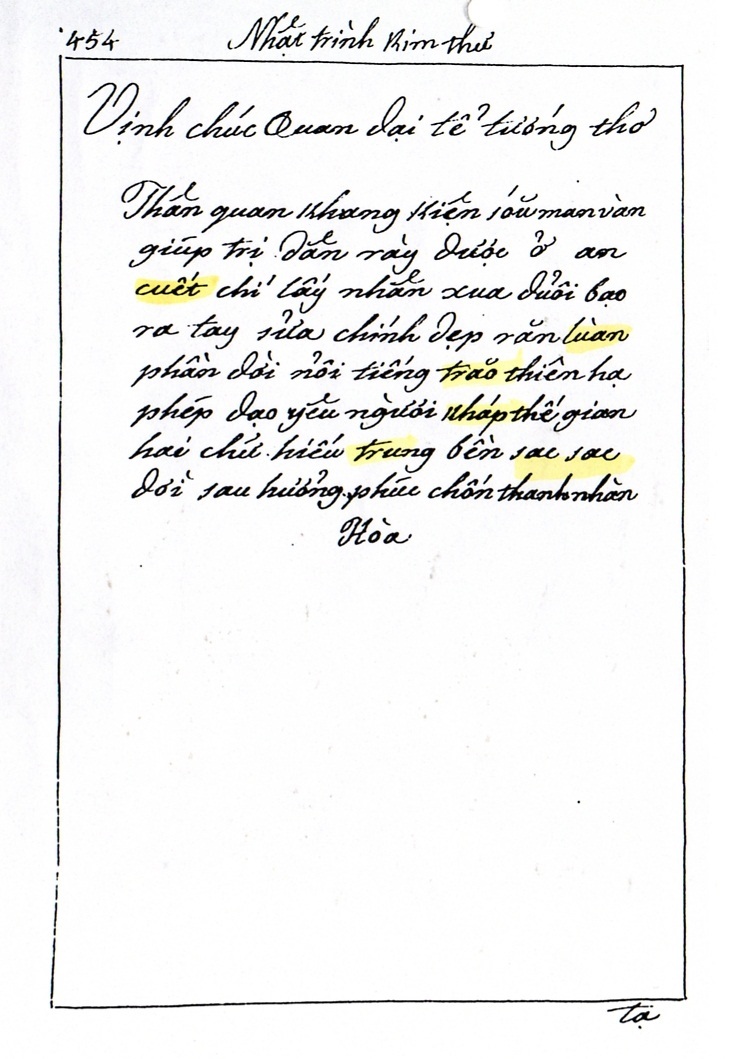 454 Nhật trình kim thư
Vịnh chúc Quan đại tể tướng thơ
Thần quan khang kiện sóũ man vàn
giúp trị dần rày được ở an
cuết chí lấy nhân xua đuổi bạo
ra tay sửa chính dẹp răn lùan
phần đời nổi tiếng traõ thiên hạ
phép đạo yếu người kháp thế gian
hai chữ hiếu trung bền sac sac
đời sau hưởng phúc chốn thanh nhàn
Hòa
tạ